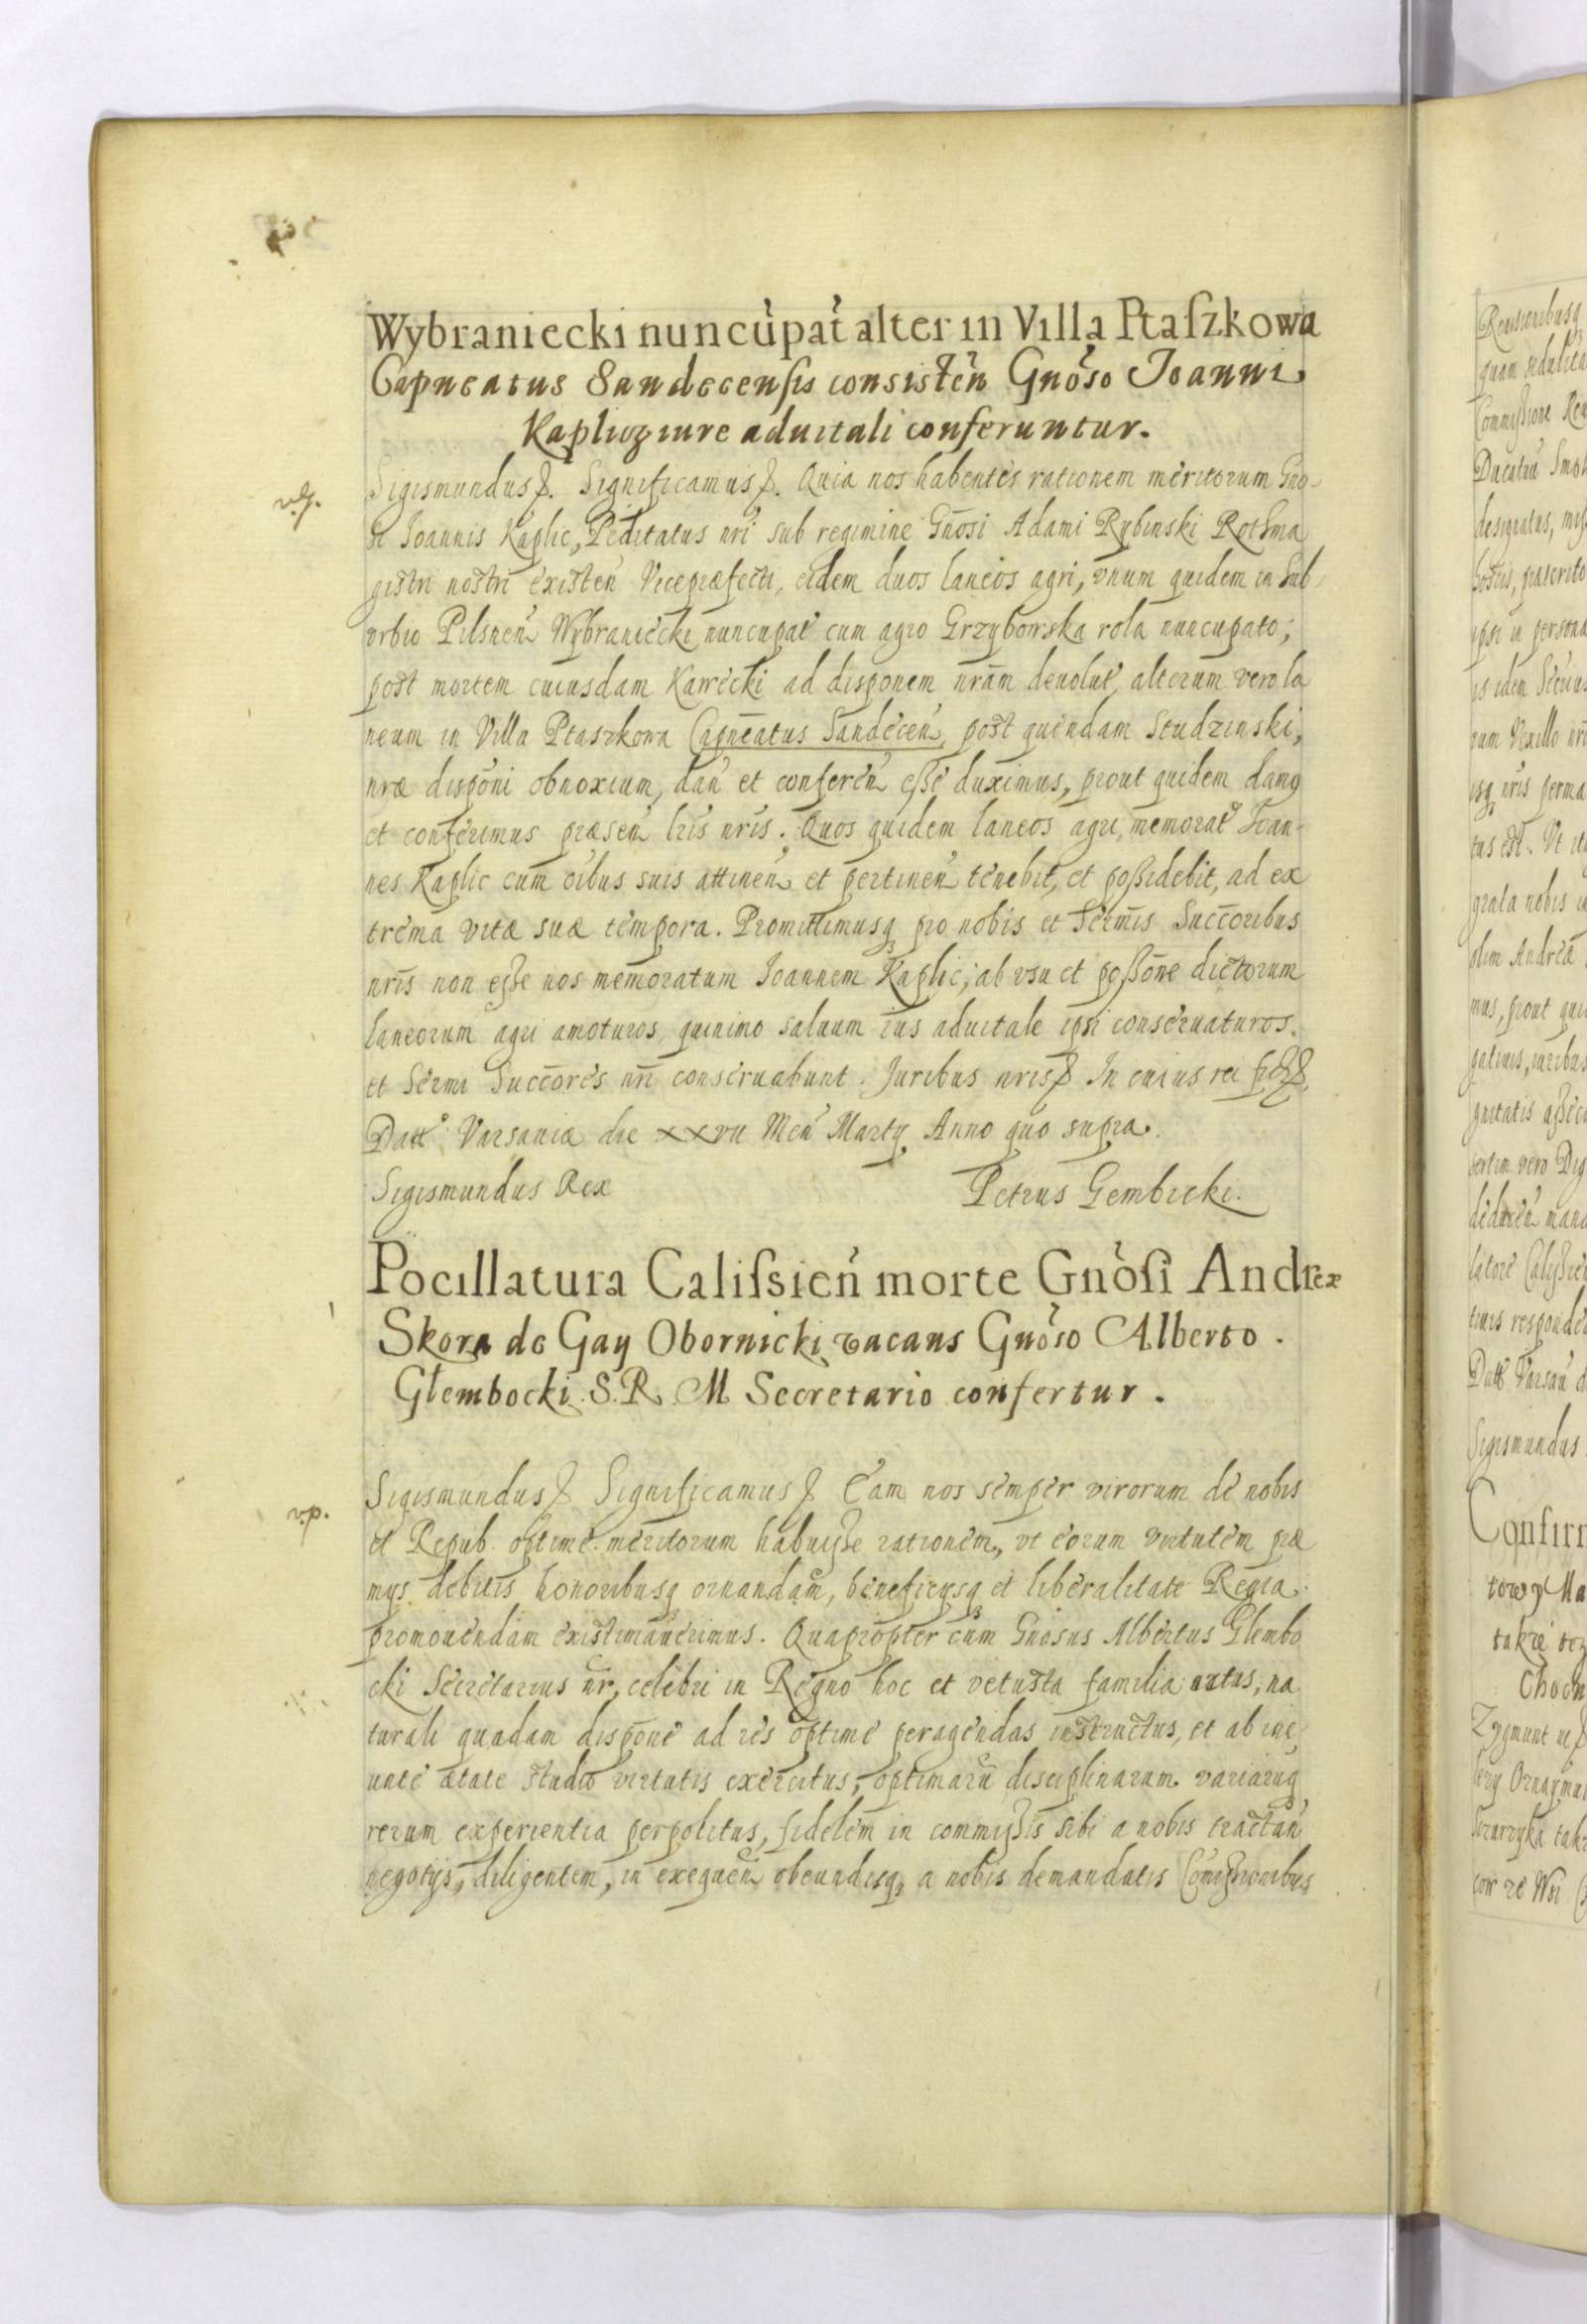 Wybraniecki nuncupat alter in Villa Ptaſzkowa
Capneatus Sandecenſis consisten Gnoso Joanni
Kaplicz iure aduitali conferuntur.
Sigismundus. Significamus. Quia nos habentes rationem meritorum Gno-
si Joannis Kaplic, Peditatus nri sub regimine Gnosi Adami Rybinski Rothma
gistri nostri existen Vicepræfecti, eidem duos laneos agri, vnum quidem in sub-
vrbio Pilsnen Wybraniecki nuncupat cum agro Grzybowska rola nuncupato;
post mortem cuiusdam Kawecki ad disponem nram deuolut, alterum vero la
neum in Villa Ptaszkowa Capneatus Sandecen, post quendam Studzinski,
nræ disponi obnoxium, dan et conferen eße duximus, prout quidem damq
et conferimus præsen lris nris. Quos quidem laneos agri, memorat Joan-
nes Kaplic cum oibus suis attinen et pertinen tenebit, et poßidebit, ad ex
trema vitæ suæ tempora. Promittimusq pro nobis et Sermis Succoribus
nris non eße nos memoratum Joannem Kaplic, ab vsu et poßone dictorum
laneorum agri amoturos, quinimo saluum ius aduitale ipsi conseruaturos.
et Sermi Succores nri conseruabunt. Juribus nris In cuius rei fid.
Datt Varsauiæ die xxvii Men Martij Anno quo supra.
Sigismundus Rex Petrus Gembicki.
Pocillatura Caliſsien morte Gnoſi Andreæ
Skora de Gay Obornicki vacans Gnoso Alberto.
Głembocki S. R. M Secretario confertur.
v.p. Sigismundus Significamus Eam nos semper virorum de nobis
et Repub. optime meritorum habuiße rationem, vt eorum virtutem præ
mijs debitis honoribusq ornandam, beneficijsq et liberalitate Regia
promouendam existimauerimus. Quapropter cum Gnosus Albertus Glembo
cki Secretarius nr, celebri in Regno hoc et vetusta familia natus, na
turali quadam dispone ad res optime peragendas instructus, et ab ine
unte ætate studio virtutis exercitus, optimaru disciplinarum variaruq
rerum experientia perpolitus, fidelem in commißis sibi a nobis tractan
negotijs, diligentem, in exequen obeundisq a nobis demandatis Comißionibus